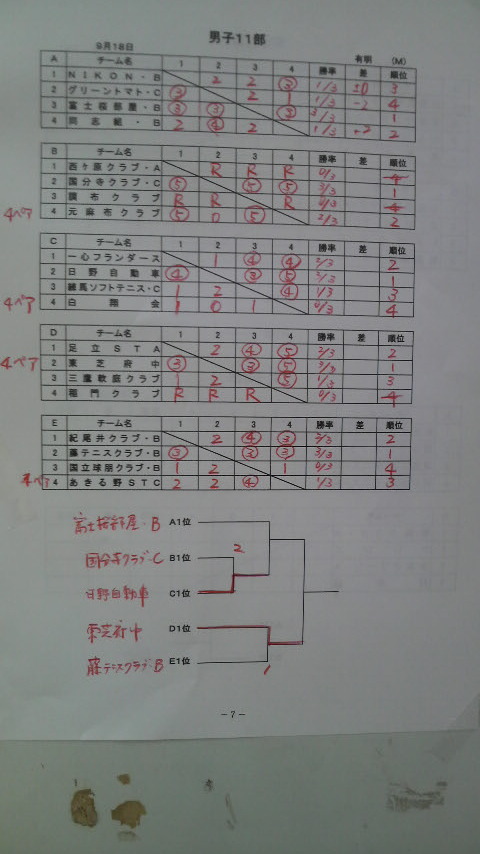 男子11部
9月18日 有明 (M)
A チーム名 1 2 3 4 勝率 差 順位
1 NIKON・B 2 2 ③ 1/3 ±0 3
2 グリーントマト・C ③ 2 1 1/3 -2 4
3 富士桜部屋・B ③ ③ ③ 3/3 1
4 同志組・B 2 ④ 2 1/3 +2 2
B チーム名 1 2 3 4 勝率 差 順位
1 西ヶ原クラブ・A R R R 0/3 4
2 国分寺クラブ・C ⑤ ⑤ ⑤ 3/3 1
3 調布クラブ R R R 0/3 4
4ペア 4 元麻布クラブ ⑤ 0 ⑤ 2/3 2
C チーム名 1 2 3 4 勝率 差 順位
1 一心フランダース 1 ④ ④ 2/3 2
2 日野自動車 ④ ③ ⑤ 3/3 1
3 練馬ソフトテニス・C 1 2 ④ 1/3 3
4ペア 4 白翔会 1 0 1 0/3 4
D チーム名 1 2 3 4 勝率 差 順位
4ペア 1 足立STA 2 ④ ⑤ 2/3 2
2 東芝府中 ③ ③ ⑤ 3/3 1
3 三鷹軟庭クラブ 1 2 ⑤ 1/3 3
4 稲門クラブ R R R 4
E チーム名 1 2 3 4 勝率 差 順位
1 紀尾井クラブ・B 2 ④ ③ 2/3 2
2 藤テニスクラブ・B ③ ③ ③ 3/3 1
3 国立球朋クラブ・B 1 2 1 0/3 4
4ペア 4 あきる野STC 2 2 ④ 1/3 3
富士桜部屋・B A1位
2
国分寺クラブ・C B1位
日野自動車 C1位
東芝府中 D1位
藤テニスクラブ・B E1位
1
-7-